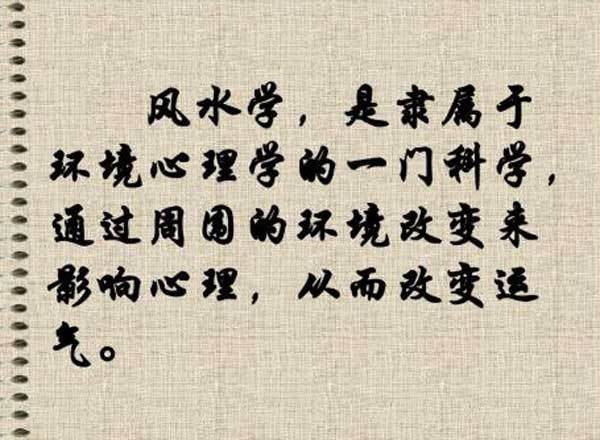 风水学，是隶属于
环境心理学的一门科学，
通过周围的环境改变来
影响心理，从而改变运
气。